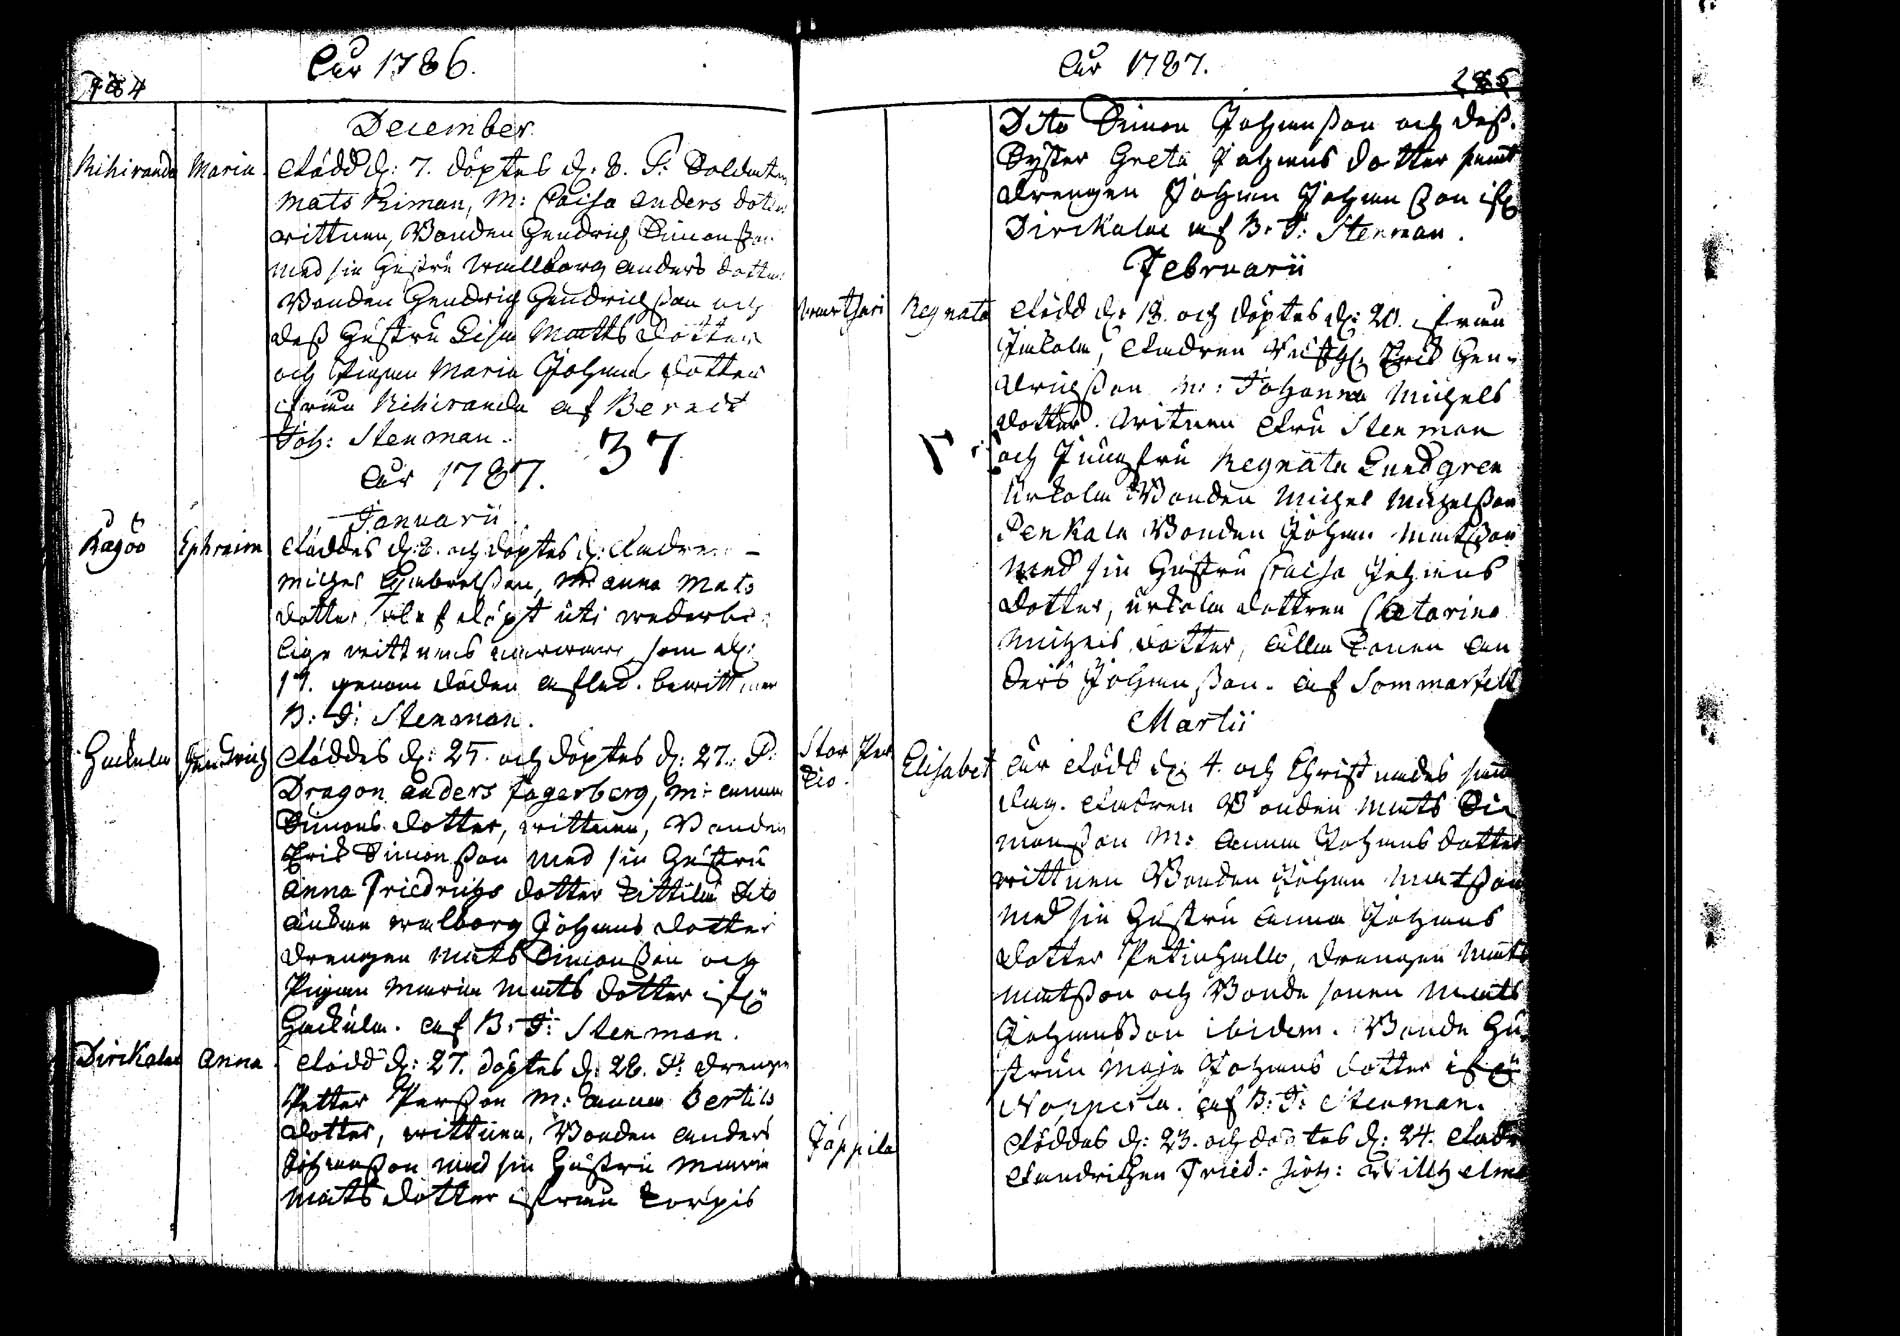 År 1786.
284
December
Kihiranda Maria Född d: 7. döptes d: 8. F: Soldaten
Mats Kiman, M: Caisa Anders dotter
wittnen, Bonden Hendrich Simonsson
med sin Hustru Wallborg Anders dotter
Bonden Hendrich Hendrichsson och
dess Hustru Lisa Matts dotter
och Pigan Maria Johans dotter
ifrån Kihiranda af Bened
Joh: Stenman. 37
År 1787.
Januarii
Ragöö Ephraim Föddes d: 8. och döptes d: Fadren
Michel Gabrelsson, M: Anna Mats
dotter, blef döpt uti wederbör
lige wittnens närwaro, som d:
17. genom döden afled. bewittnar
B: J: Stenman.
Hackula Hendrich Föddes d: 25. och döptes d: 27. F:
Dragon Anders Fagerberg, M: Anna
Simons dotter, wittnen, Bonden
Erik Simonsson med sin Hustru
Anna Friedrichs dotter dito
Enkan Walborg Johans dotter
Drengen Mats Simonsson och
Pigan Maria Mats dotter ifr:
Hackula. af B: J: Stenman.
Dirikalae Anna Född d: 27. döptes d: 28. F: drengen
Petter Persson M: Anna Bertils
dotter, wittnen, Bonden Anders
Johansson med sin Hustru Maria
Mats dotter ifrån Torpis
År 1787.
285
Dito Simon Johansson och dess
Syster Greta Johans dotter samt
drengen Johan Johansson ifr:
Dirikalae af B: J: Stenman.
Februarii
Regnata Född d: 18. och döptes d: 20. ifrån
Fadren Erik Hen-
drichsson M: Johanna Michels
dotter. Witnen Fru Stenman
och Jungfru Regnata Lundgren
Urkola Bonden Michel Michelsson
Penkala Bonden Johan Matsson
med sin Hustru Caisa Johans
dotter, Urkola dottren Catarina
Michels dotter, Ulla sonen An
ders Johansson. af Sommarfelt
Martii
Stor Per
tio. Elisabet År Född d: 4. och Christnades samma
dag. Fadren Bonden Mats Si
monsson M: Anna Johans dotter
wittnen Bonden Johan Matsson
med sin Hustru Anna Johans
dotter Petinhallo, drengen Mats
Matsson och Bonde sonen Mats
Johansson ibidem. Bonde Hu
strun Maja Johans dotter ifr:
Noppisla. af B: J: Stenman.
Jäppilä Föddes d: 23. och döptes d: 24. Fadr
Fendrichen Fried: Joh: Willhelm